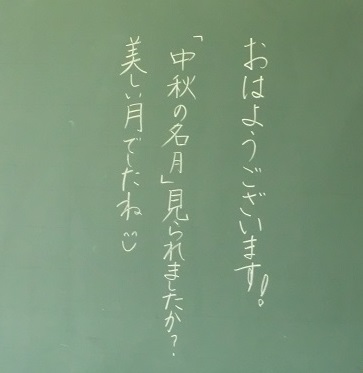 おはようございます!
「中秋の名月」見られましたか?
美しい月でしたね